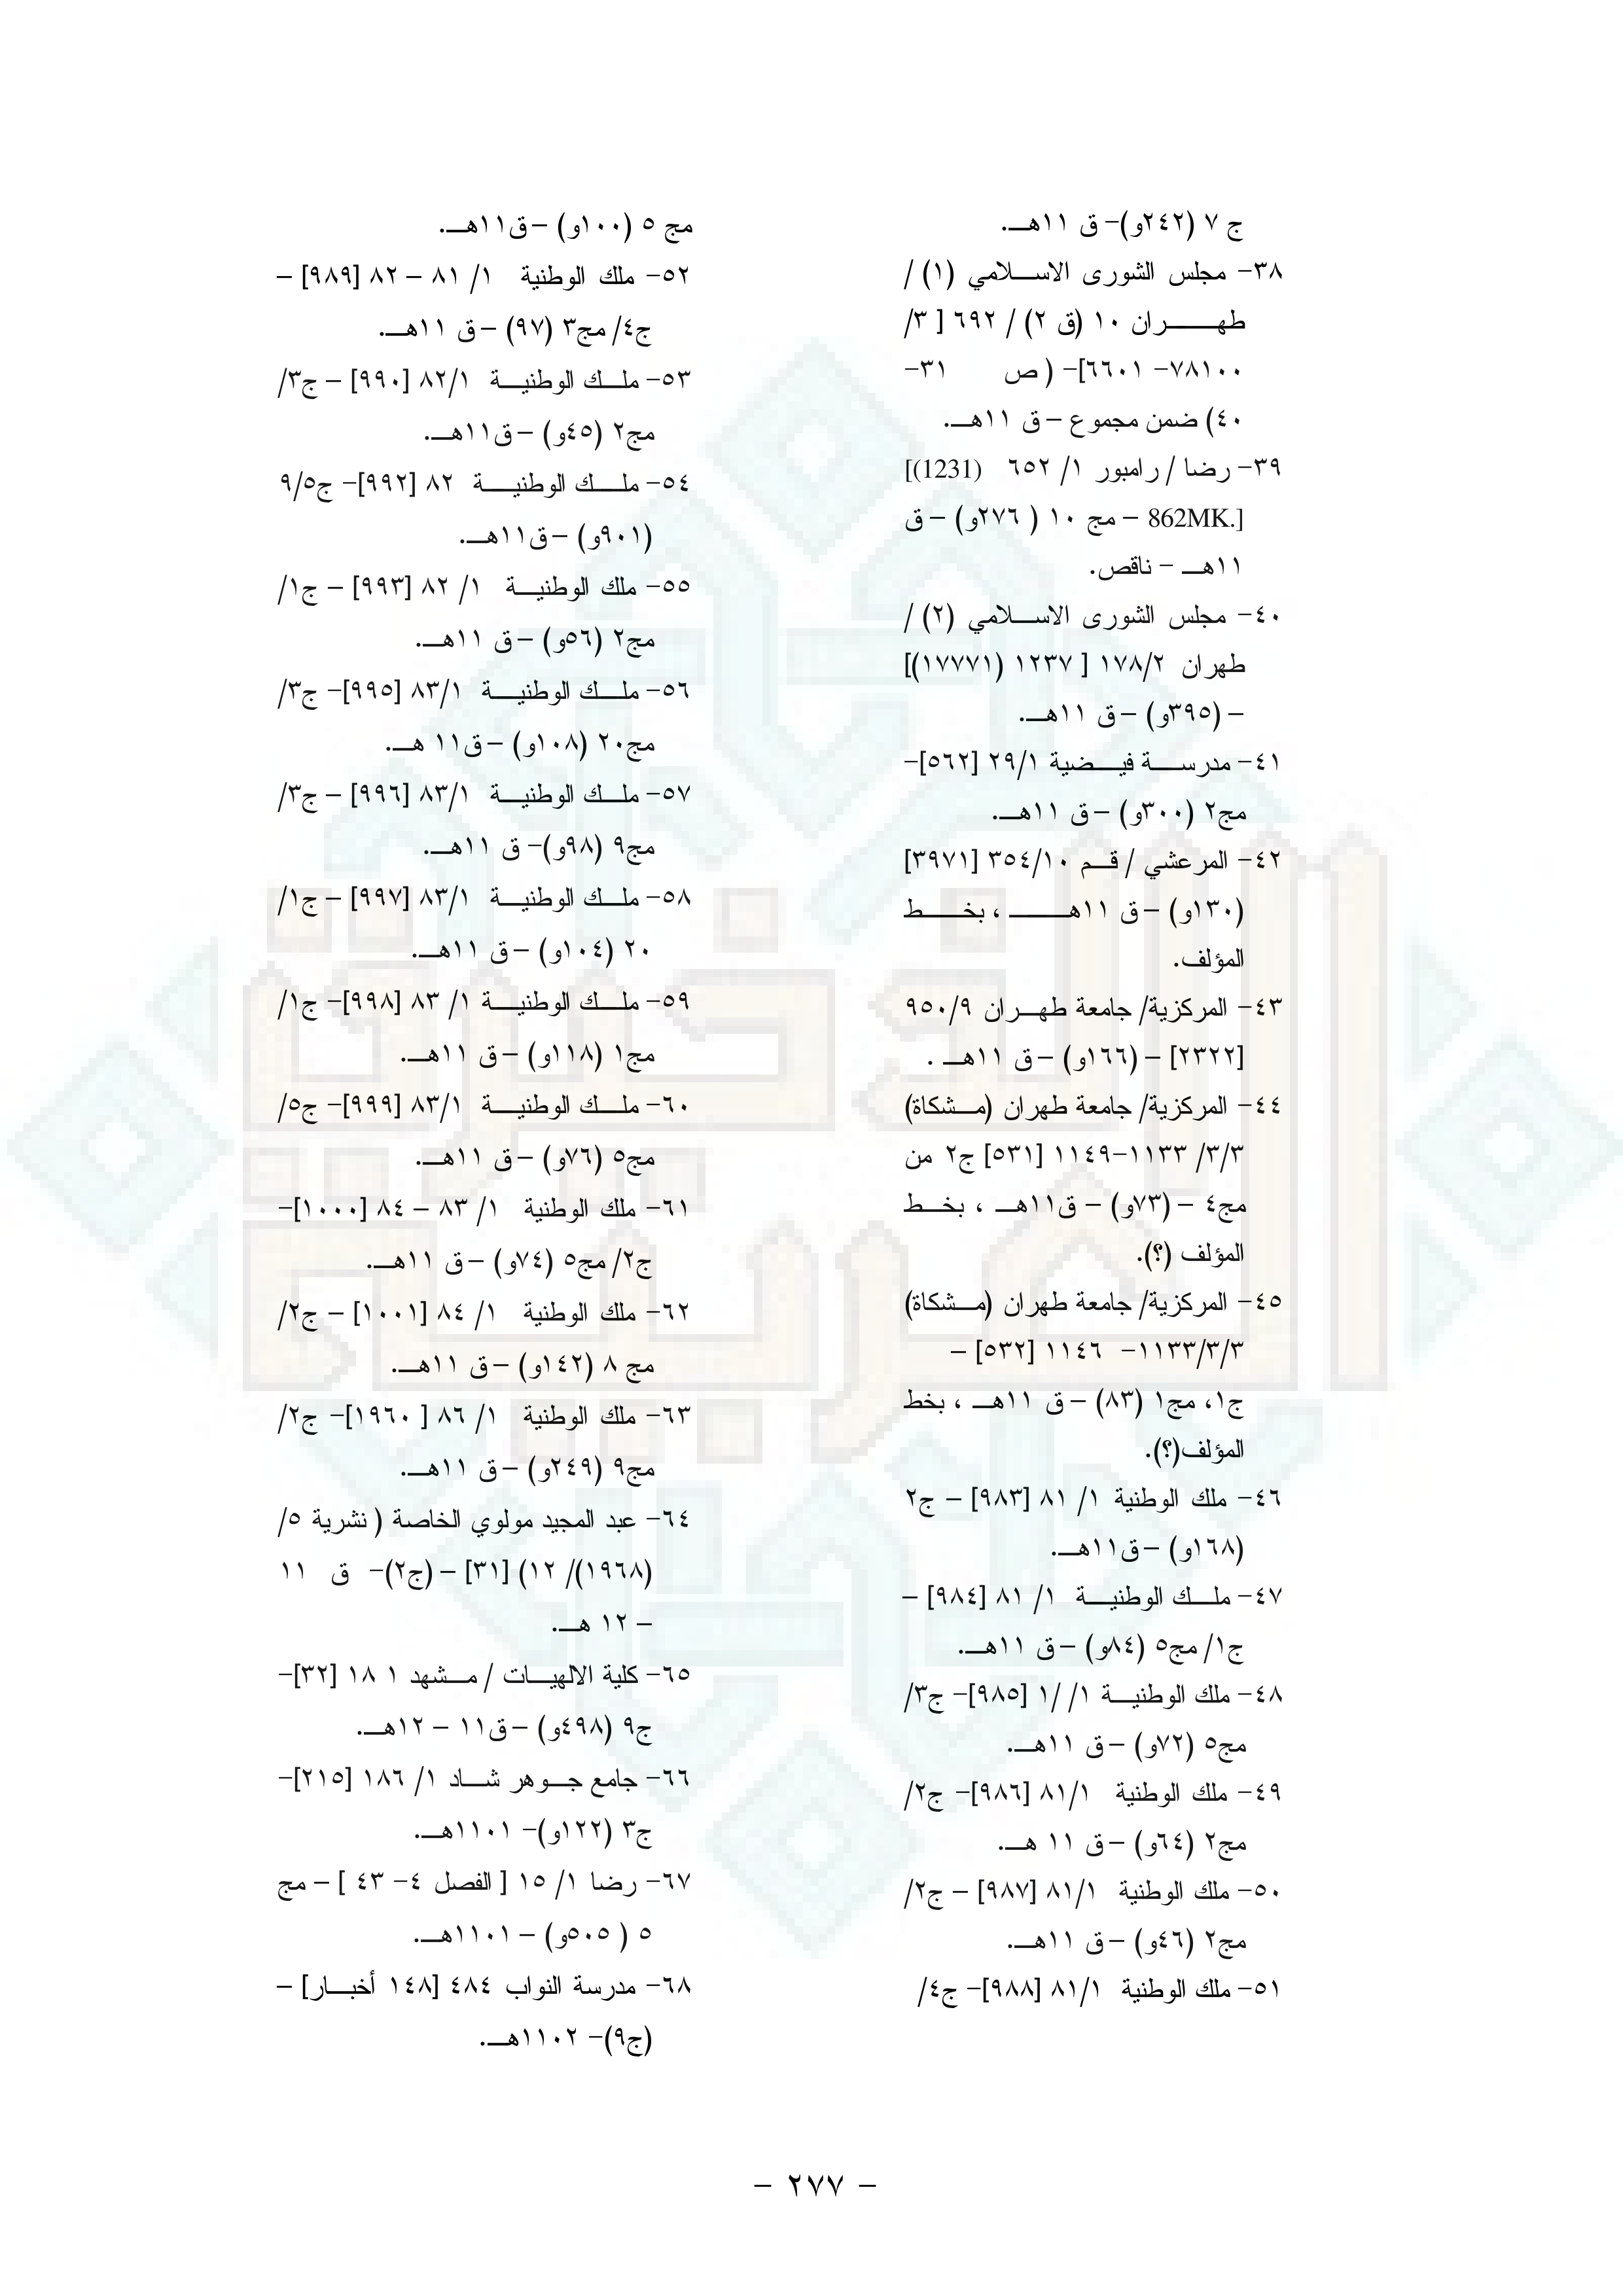 ج ٧ (٢٤٢و)- ق ١١هـ.
٣٨- مجلس الشورى الاسلامي (١) /
طهران ١٠ (ق ٢) / ٦٩٢ [ ٣/
٧٨١٠٠- ٦٦٠١]- ( ص ٣١-
٤٠) ضمن مجموع – ق ١١هـ.
٣٩- رضا / رامبور ١/ ٦٥٢ (1231)]
[.862MK – مج ١٠ ( ٢٧٦و) – ق
١١هـ – ناقص.
٤٠- مجلس الشورى الاسلامي (٢) /
طهران ١٧٨/٢ [ ١٢٣٧ (١٧٧٧١)]
– (٣٩٥و) – ق ١١هـ.
٤١- مدرسة فيضية ٢٩/١ [٥٦٢]-
مج٢ (٣٠٠و) – ق ١١هـ.
٤٢- المرعشي / قم ٣٥٤/١٠ [٣٩٧١]
(١٣٠و) – ق ١١هـ ، بخط
المؤلف.
٤٣- المركزية/ جامعة طهران ٩٥٠/٩
[٢٣٢٢] – (١٦٦و) – ق ١١هـ .
٤٤- المركزية/ جامعة طهران (مشكاة)
٣/٣/ ١١٣٣-١١٤٩ [٥٣١] ج٢ من
مج٤ – (٧٣و) – ق١١هـ ، بخط
المؤلف (؟).
٤٥- المركزية/ جامعة طهران (مشكاة)
١١٣٣/٣/٣- ١١٤٦ [٥٣٢] –
ج١، مج١ (٨٣) – ق ١١هـ ، بخط
المؤلف(؟).
٤٦- ملك الوطنية ١/ ٨١ [٩٨٣] – ج٢
(١٦٨و) – ق١١هـ.
٤٧- ملك الوطنية ١/ ٨١ [٩٨٤] –
ج١/ مج٥ (٨٤و) – ق ١١هـ.
٤٨- ملك الوطنية ١/ /١ [٩٨٥]- ج٣/
مج٥ (٧٢و) – ق ١١هـ.
٤٩- ملك الوطنية ٨١/١ [٩٨٦]- ج٢/
مج٢ (٦٤و) – ق ١١ هـ.
٥٠- ملك الوطنية ٨١/١ [٩٨٧] – ج٢/
مج٢ (٤٦و) – ق ١١هـ.
٥١- ملك الوطنية ٨١/١ [٩٨٨]- ج٤/
مج ٥ (١٠٠و) – ق١١هـ.
٥٢- ملك الوطنية ١/ ٨١ – ٨٢ [٩٨٩] –
ج٤/ مج٣ (٩٧) – ق ١١هـ.
٥٣- ملك الوطنية ٨٢/١ [٩٩٠] – ج٣/
مج٢ (٤٥و) – ق١١هـ.
٥٤- ملك الوطنية ٨٢ [٩٩٢]- ج٩/٥
(٩٠١و) – ق١١هـ.
٥٥- ملك الوطنية ١/ ٨٢ [٩٩٣] – ج١/
مج٢ (٥٦و) – ق ١١هـ.
٥٦- ملك الوطنية ٨٣/١ [٩٩٥]- ج٣/
مج٢٠ (١٠٨و) – ق١١ هـ.
٥٧- ملك الوطنية ٨٣/١ [٩٩٦] – ج٣/
مج٩ (٩٨و)- ق ١١هـ.
٥٨- ملك الوطنية ٨٣/١ [٩٩٧] – ج١/
٢٠ (١٠٤و) – ق ١١هـ.
٥٩- ملك الوطنية ١/ ٨٣ [٩٩٨]- ج١/
مج١ (١١٨و) – ق ١١هـ.
٦٠- ملك الوطنية ٨٣/١ [٩٩٩]- ج٥/
مج٥ (٧٦و) – ق ١١هـ.
٦١- ملك الوطنية ١/ ٨٣ – ٨٤ [١٠٠٠]-
ج٢/ مج٥ (٧٤و) – ق ١١هـ.
٦٢- ملك الوطنية ١/ ٨٤ [١٠٠١] – ج٢/
مج ٨ (١٤٢و) – ق ١١هـ.
٦٣- ملك الوطنية ١/ ٨٦ [ ١٩٦٠]- ج٢/
مج٩ (٢٤٩و) – ق ١١هـ.
٦٤- عبد المجيد مولوي الخاصة ( نشرية ٥/
(١٩٦٨)/ ١٢) [٣١] – (ج٢)- ق ١١
– ١٢ هـ.
٦٥- كلية الالهيات / مشهد ١ ١٨ [٣٢]-
ج٩ (٤٩٨و) – ق١١ – ١٢هـ.
٦٦- جامع جوهر شاد ١/ ١٨٦ [٢١٥]-
ج٣ (١٢٢و)- ١١٠١هـ.
٦٧- رضا ١/ ١٥ [ الفصل ٤- ٤٣ ] – مج
٥ ( ٥٠٥و) – ١١٠١هـ.
٦٨- مدرسة النواب ٤٨٤ [١٤٨ أخبار] –
(ج٩)- ١١٠٢هـ.
– ٢٧٧ –